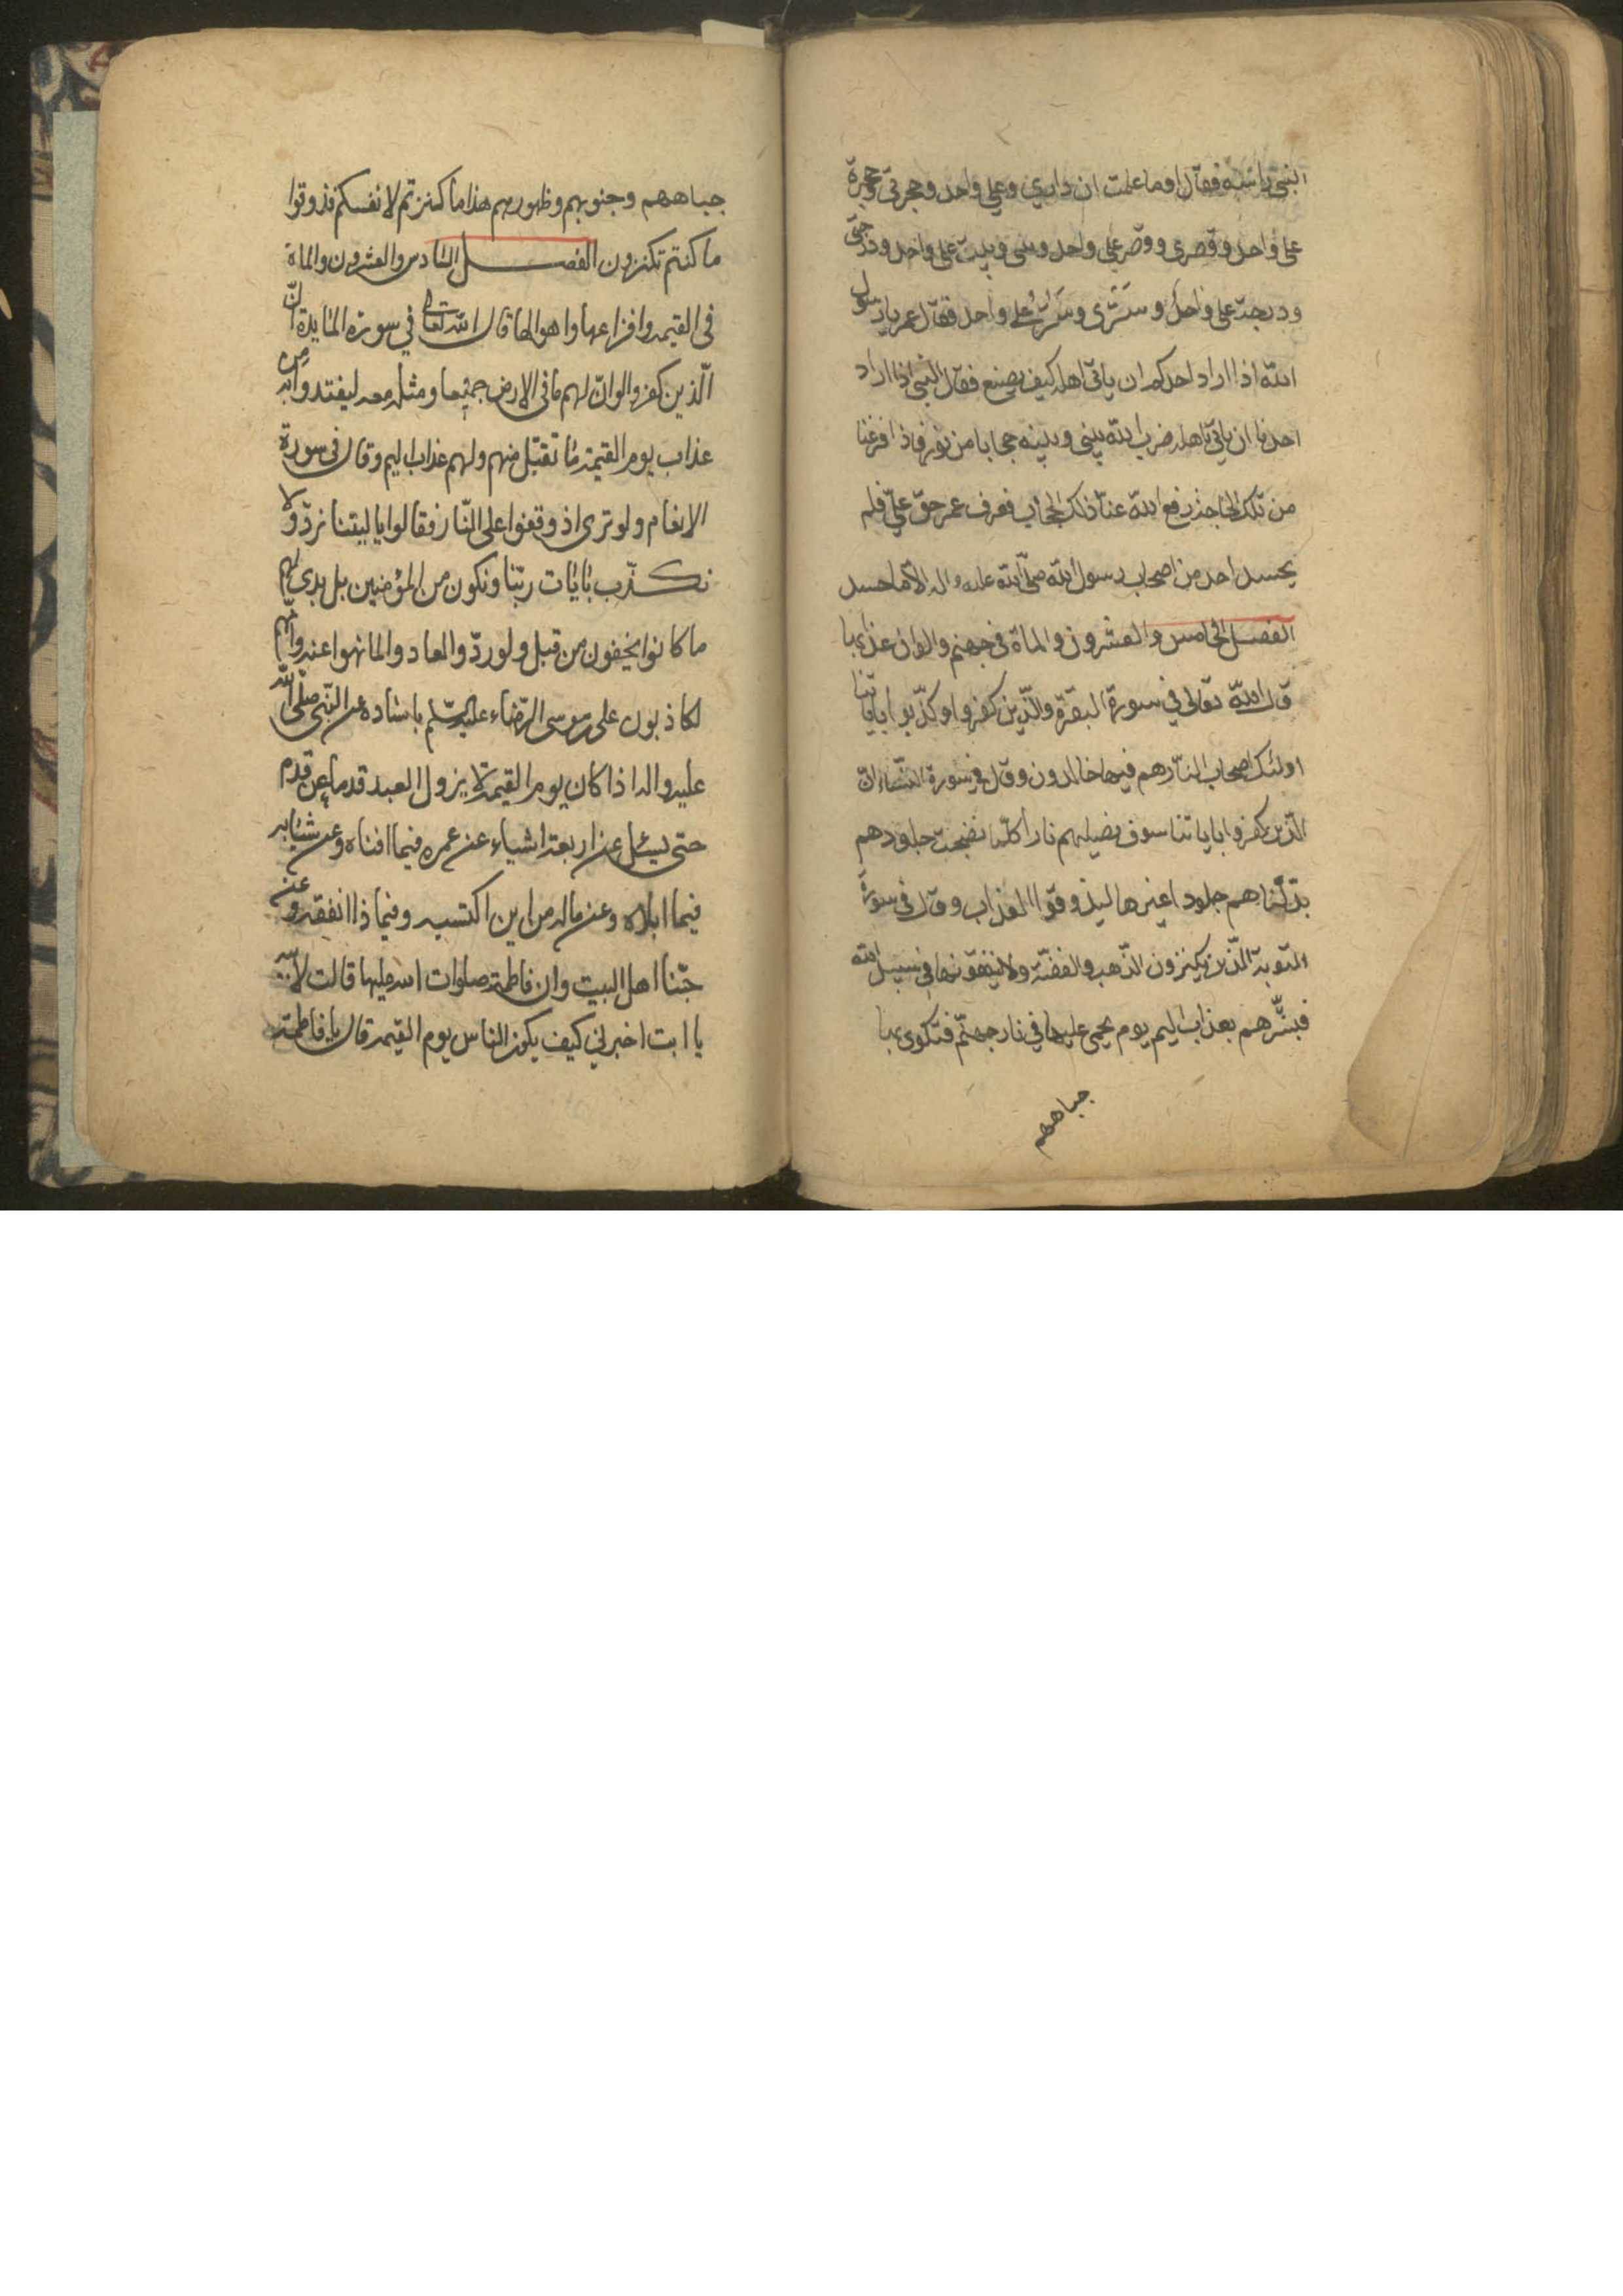 النبي رأسه فقال اوما علمت ان داري وعلي واحد وحجرتي وحجرة
علي واحد وقصري وقصر علي واحد وبيتي وبيت علي واحد ودرجتي
ودرجة علي واحد وستري وستر علي واحد فقال عمر يا رسول
الله اذا اراد احدكم ان ياتي اهله كيف يصنع فقال النبي اذا اراد
احدنا ان ياتي باهله ضرب الله بيني وبينه حجابا من نور فاذا فرغنا
من تلك الحاجة رفع الله عنا ذلك الحجاب فعرف عمر حق علي فلم
يحسد احد من اصحاب رسول الله صلى الله عليه واله الا ما حسد
الفصل الخامس والعشرون والمائة في جهنم والوان عذابها
قال الله تعالى في سورة البقرة والّذين كفروا وكذّبوا باياتنا
اولئك اصحاب النار هم فيها خالدون وقال في سورة النساء انّ
الّذين كفروا باياتنا سوف نصليهم نارا كلّما نضجت جلودهم
بدّلناهم جلودا غيرها ليذوقوا العذاب وقال في سورة
التوبة الّذين يكنزون الذّهب والفضّة ولا ينفقونها في سبيل الله
فبشّرهم بعذاب اليم يوم يحمى عليها في نار جهنّم فتكوى بها
جباههم
جباههم وجنوبهم وظهورهم هذا ما كنزتم لانفسكم فذوقوا
ما كنتم تكنزون الفصل السادس والعشرون والمائة
في القيمة وافزاعها واهوالها قال الله تعالى في سورة المائدة انّ
الّذين كفروا لو انّ لهم ما في الارض جميعا ومثله معه ليفتدوا به من
عذاب يوم القيمة ما تقبّل منهم ولهم عذاب اليم وقال في سورة
الانعام ولو ترى اذ وقفوا على النّار فقالوا يا ليتنا نردّ ولا
نكذّب بايات ربّنا ونكون من المؤمنين بل بدى لهم
ما كانوا يخفون من قبل ولو ردّوا لعادوا لما نهوا عنه وانّهم
لكاذبون علي بن موسى الرّضاء عليه السّلم باسناده عن النّبي صلّى الله
عليه واله اذا كان يوم القيمة لا يزول العبد قدما عن قدم
حتى يسئل عن اربعة اشياء عن عمره فيما افناه وعن شبابه
فيما ابلاه وعن ماله من اين اكتسبه وفيما ذا انفقه وعن
حبّنا اهل البيت وان فاطمة صلوات الله عليها قالت لابيه
يا ابت اخبرني كيف يكون الناس يوم القيمة قال يا فاطمة